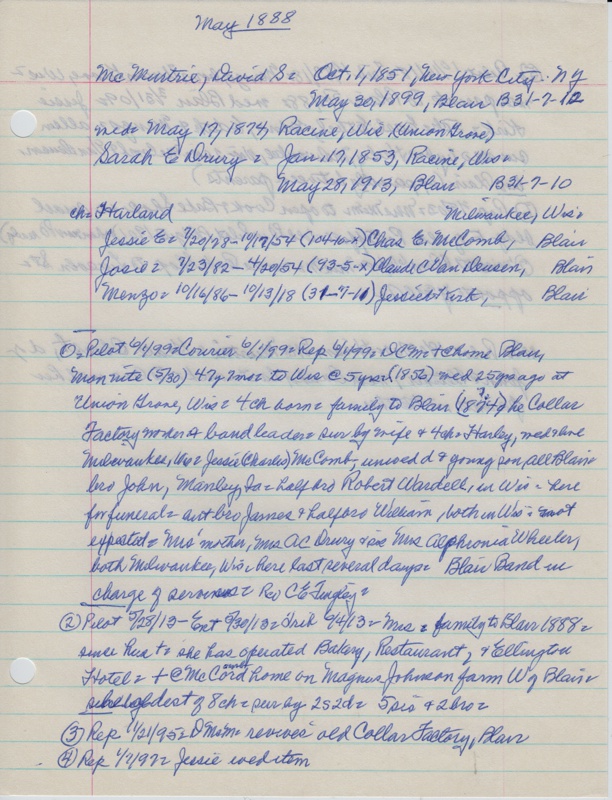 May 1888
Mc Murtrie, David S = Oct. 1, 1851, New York City, NY
May 30, 1899, Blair B31-7-12
med = May 17, 1874, Racine, Wis (Union Grove)
Sarah E Drury = Jan. 17, 1853, Racine, Wis =
May 28, 1913, Blair B31-7-10
ch = Harland Milwaukee, Wis =
Jessie E = 7/20/78 - (104-10-x) Chas E. McComb, Blair
Josie = 7/23/82 - 4/20/54 (93-5-x) Claude Van Deusen, Blair
Menzo = 10/16/86 - 10/13/18 (31-7-11) Jessie Kirk, Blair
① = Pilot 6/1/99 = Courier 6/1/99 = Rep 6/1/99 = DCM + @ home Blair,
Mon nite (5/30) 47y 7mo = to Wis @ 5 years (1856) med 25 yrs ago at
Union Grove, Wis = 4 ch born = family to Blair he Collar
Factory & band leader = sur by wife & 4 ch = Harley, med & live
Milwaukee, Wis = Jessie (Charles) McComb, unwed d & young son, all Blair =
bro John, Manley, Ia = half bro Robert Wardell, in Wis = here
for funeral = bro James & half bro William, both in Wis = not
expected = Mrs' mother, Mrs AC Drury & sis Mrs Alphronia Wheeler,
both Milwaukee, Wis = here last several days = Blair Band in
charge of services = Rev C E Tingley =
② Pilot 5/28/13 - Ent 5/30/13 = Trib 6/4/13 = Mrs = family to Blair 1888 =
since hus + = she has operated Bakery, Restaurant, & Ellington
Hotel = + @ McCord home on Magnus Johnson farm W of Blair =
oldest of 8 ch = sur by 2s 2d = 5 sis & 2 bro =
③ Rep 11/21/95 = D McM revives old Collar Factory, Blair
④ Rep 1/7/97 = Jessie wed item